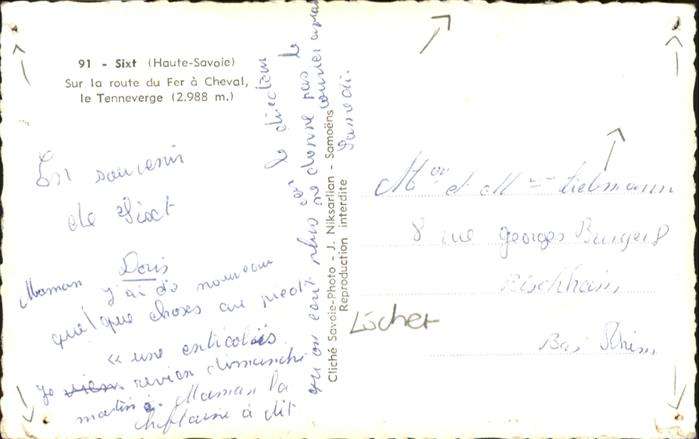 91 - Sixt (Haute-Savoie)
Sur la route du Fer à Cheval,
le Tenneverge (2.988 m.)
En souvenir
de Sixt
Doris
Maman y'ai de nouveau
quelque choses au pied
« une
Je revien dimanche
matin. Maman la
à dit
qu'on eent plus
le directeur
ne donne pas le
courrier
Cliché Savoie-Photo - J. Niksarlian - Samoëns
Reproduction interdite
Mr et Mme Liebmann
8 rue Georges
Bischheim
Bas Rhin
Löcher